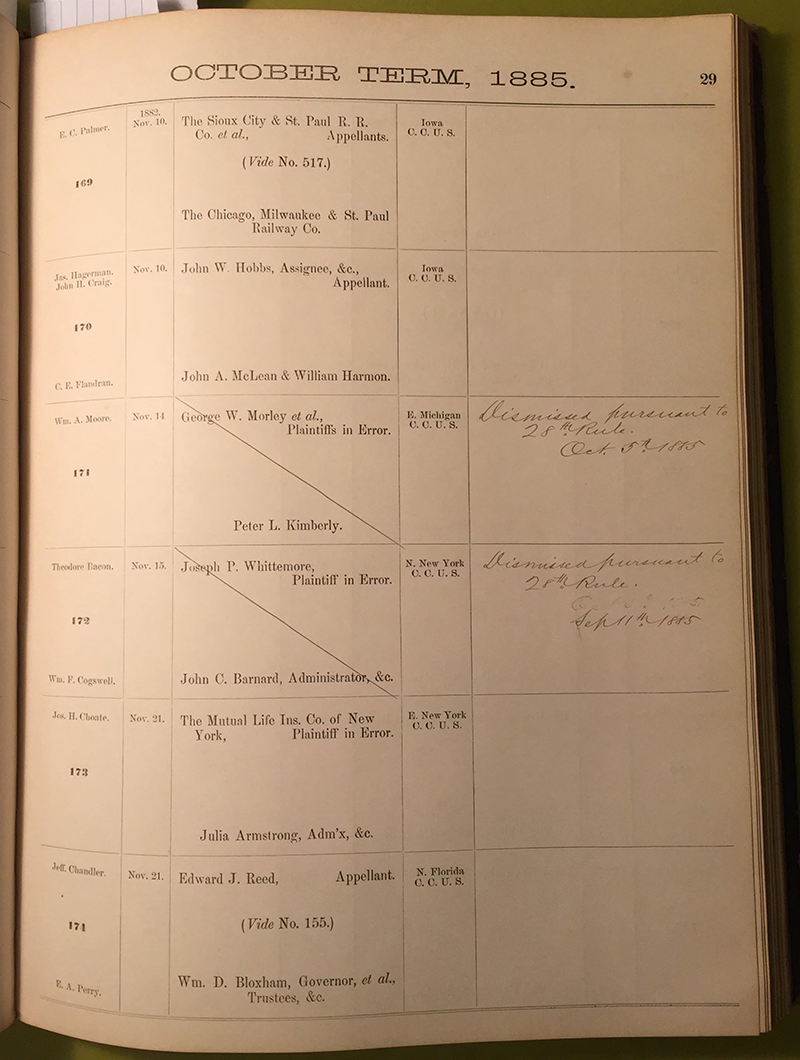 OCTOBER TERM, 1885.
29
E. C. Palmer.
169
1882.
Nov. 10.
The Sioux City & St. Paul R. R.
Co. et al., Appellants.
(Vide No. 517.)
The Chicago, Milwaukee & St. Paul
Railway Co.
Iowa
C. C. U. S.
Jas. Hagerman.
John H. Craig.
170
C. E. Flandrau.
Nov. 10.
John W. Hobbs, Assignee, &c.,
Appellant.
John A. McLean & William Harmon.
Iowa
C. C. U. S.
Wm. A. Moore.
171
Nov. 14
George W. Morley et al.,
Plaintiffs in Error.
Peter L. Kimberly.
E. Michigan
C. C. U. S.
Dismissed pursuant to
28th Rule.
Oct. 5th 1885
Theodore Bacon.
172
Wm. F. Cogswell.
Nov. 15.
Joseph P. Whittemore,
Plaintiff in Error.
John C. Barnard, Administrator, &c.
N. New York
C. C. U. S.
Dismissed pursuant to
28th Rule.
Sep 11th 1885
Jos. H. Choate.
173
Nov. 21.
The Mutual Life Ins. Co. of New
York, Plaintiff in Error.
Julia Armstrong, Adm'x, &c.
E. New York
C. C. U. S.
Jeff. Chandler.
174
E. A. Perry.
Nov. 21.
Edward J. Reed, Appellant.
(Vide No. 155.)
Wm. D. Bloxham, Governor, et al.,
Trustees, &c.
N. Florida
C. C. U. S.